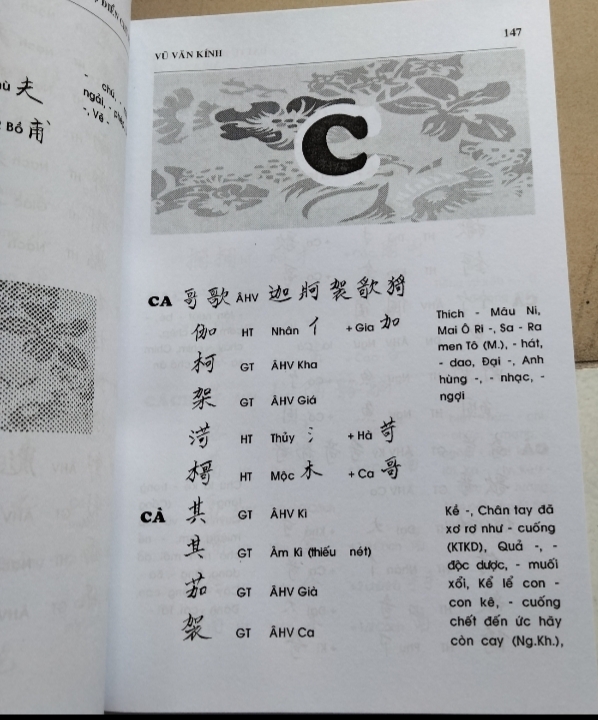 ĐIỂN
ù 夫
Bổ 甫
- chú, -
ngải, - phép
-, Vẽ -
VŨ VĂN KÍNH
147
C
CA 哥 歌 ÂHV 迦 牁 袈 歌
伽 HT Nhân 亻 + Gia 加
柯 GT ÂHV Kha
架 GT ÂHV Giá
渮 HT Thủy 氵 + Hà 苛
樢 HT Mộc 木 + Ca 哥
Thích - Mâu Ni,
Mai Ô Ri -, Sa - Ra
men Tô (M.), - hát,
- dao, Đại -, Anh
hùng -, - nhạc, -
ngợi
CÀ 其 GT ÂHV Kì
其 GT Âm Kì (thiếu nét)
茄 GT ÂHV Già
袈 GT ÂHV Ca
Kề -, Chân tay đã
xơ rơ như - cuống
(KTKD), Quả -, -
độc dược, - muối
xổi, Kể lể con -
con kê, - cuống
chết đến ức hãy
còn cay (Ng.Kh.),